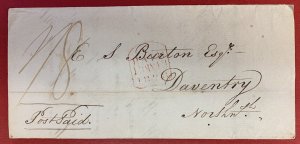 E S Burton Esqr.
Daventry
Northn. sh.
Post Paid.